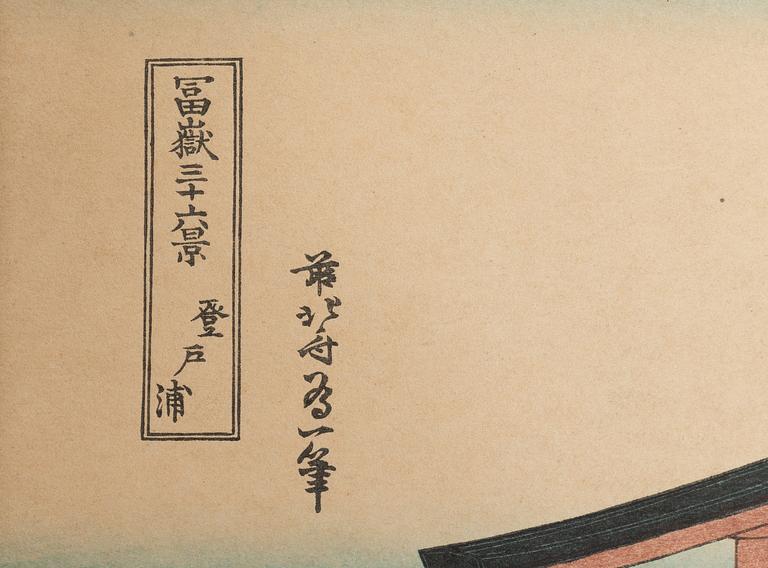 冨嶽三十六景
登戸浦
前北斎為一筆